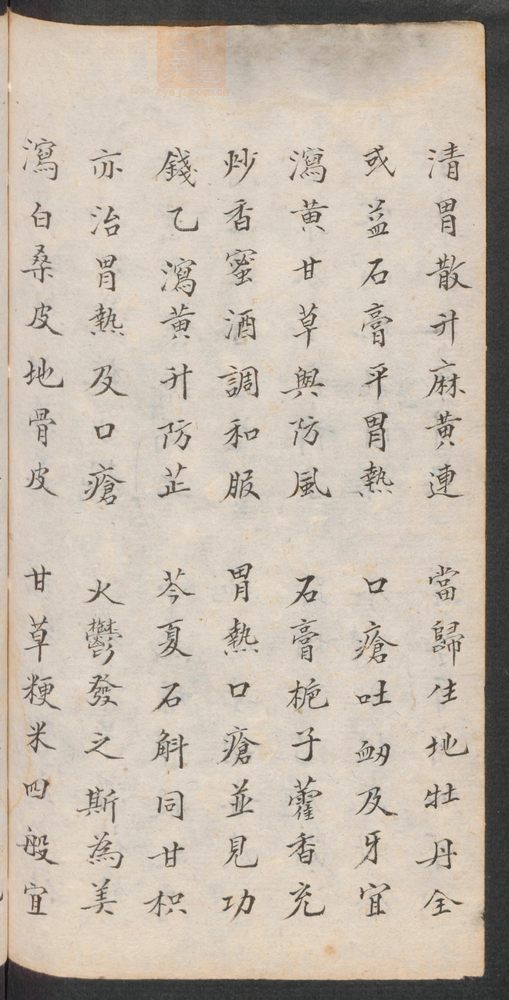 清胃散升麻黄連　當歸生地牡丹全
或益石膏平胃熱　口瘡吐衄及牙宜
瀉黄甘草與防風　石膏梔子藿香充
炒香蜜酒調和服　胃熱口瘡並見功
錢乙瀉黄升防芷　芩夏石斛同甘枳
亦治胃熱及口瘡　火鬱發之斯為美
瀉白桑皮地骨皮　甘草粳米四般宜